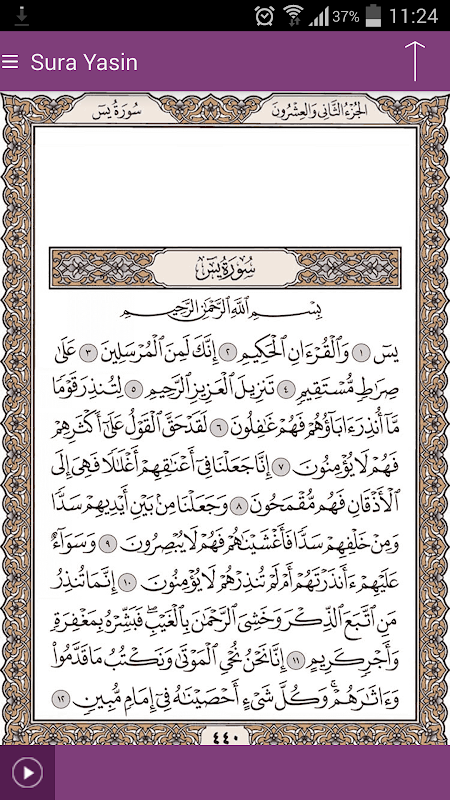 37% 11:24
Sura Yasin
سُورَةُ يسٓ الجُزْءُ الثَّانِي وَالعِشْرُونَ
سُورَةُ يسٓ
بِسْمِ ٱللَّهِ ٱلرَّحْمَٰنِ ٱلرَّحِيمِ
يسٓ ١ وَٱلْقُرْءَانِ ٱلْحَكِيمِ ٢ إِنَّكَ لَمِنَ ٱلْمُرْسَلِينَ ٣ عَلَىٰ
صِرَٰطٍ مُّسْتَقِيمٍ ٤ تَنزِيلَ ٱلْعَزِيزِ ٱلرَّحِيمِ ٥ لِتُنذِرَ قَوْمًا
مَّآ أُنذِرَ ءَابَآؤُهُمْ فَهُمْ غَٰفِلُونَ ٦ لَقَدْ حَقَّ ٱلْقَوْلُ عَلَىٰٓ أَكْثَرِهِمْ
فَهُمْ لَا يُؤْمِنُونَ ٧ إِنَّا جَعَلْنَا فِىٓ أَعْنَٰقِهِمْ أَغْلَٰلًا فَهِىَ إِلَى
ٱلْأَذْقَانِ فَهُم مُّقْمَحُونَ ٨ وَجَعَلْنَا مِنۢ بَيْنِ أَيْدِيهِمْ سَدًّا
وَمِنْ خَلْفِهِمْ سَدًّا فَأَغْشَيْنَٰهُمْ فَهُمْ لَا يُبْصِرُونَ ٩ وَسَوَآءٌ
عَلَيْهِمْ ءَأَنذَرْتَهُمْ أَمْ لَمْ تُنذِرْهُمْ لَا يُؤْمِنُونَ ١٠ إِنَّمَا تُنذِرُ
مَنِ ٱتَّبَعَ ٱلذِّكْرَ وَخَشِىَ ٱلرَّحْمَٰنَ بِٱلْغَيْبِ ۖ فَبَشِّرْهُ بِمَغْفِرَةٍ
وَأَجْرٍ كَرِيمٍ ١١ إِنَّا نَحْنُ نُحْىِ ٱلْمَوْتَىٰ وَنَكْتُبُ مَا قَدَّمُوا۟
وَءَاثَٰرَهُمْ ۚ وَكُلَّ شَىْءٍ أَحْصَيْنَٰهُ فِىٓ إِمَامٍ مُّبِينٍ ١٢
٤٤٠